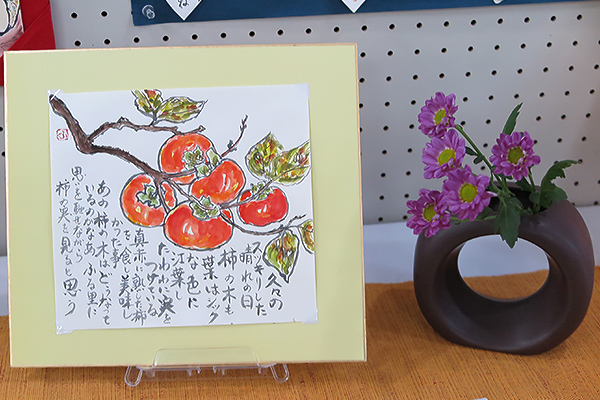 久々の
スッキリした
晴れの日
柿の木も
葉はシック
な色に
紅葉し
たわわに実を
つけている
真赤に熟した柿
を食し美味し
かった事
あの柿の木はどうなって
いるのかなあ ふる里に
思いを馳せながら
柿の実を見ると思う